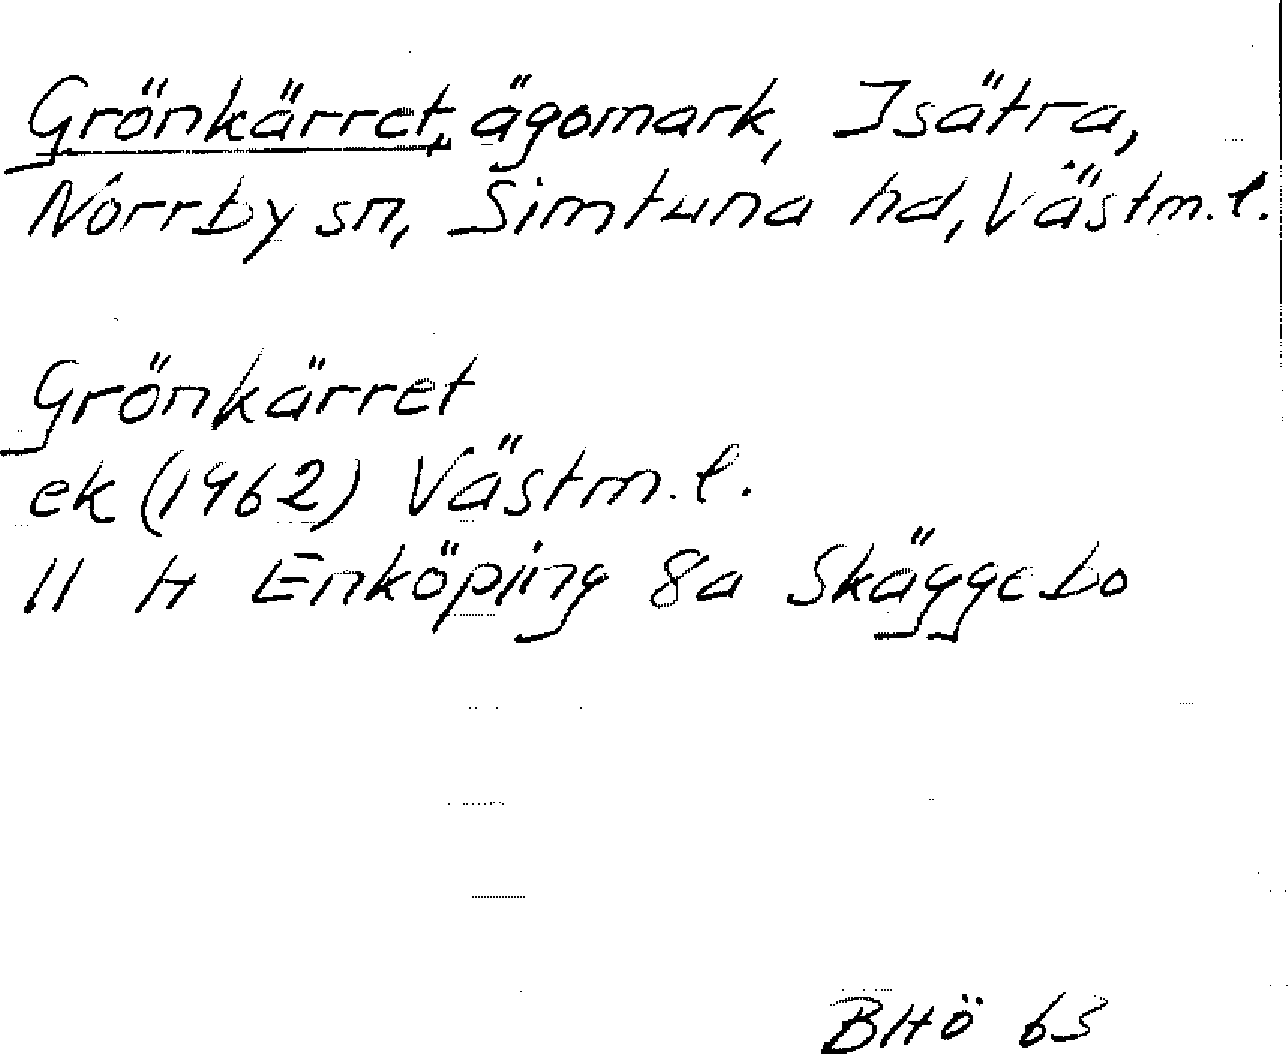 Grönkärret, ägomark, Isätra,
Norrby sn, Simtuna hd, Västm. l.
Grönkärret
ek (1962) Västm. l.
11 H Enköping 8a Skäggebo
BHÖ 63